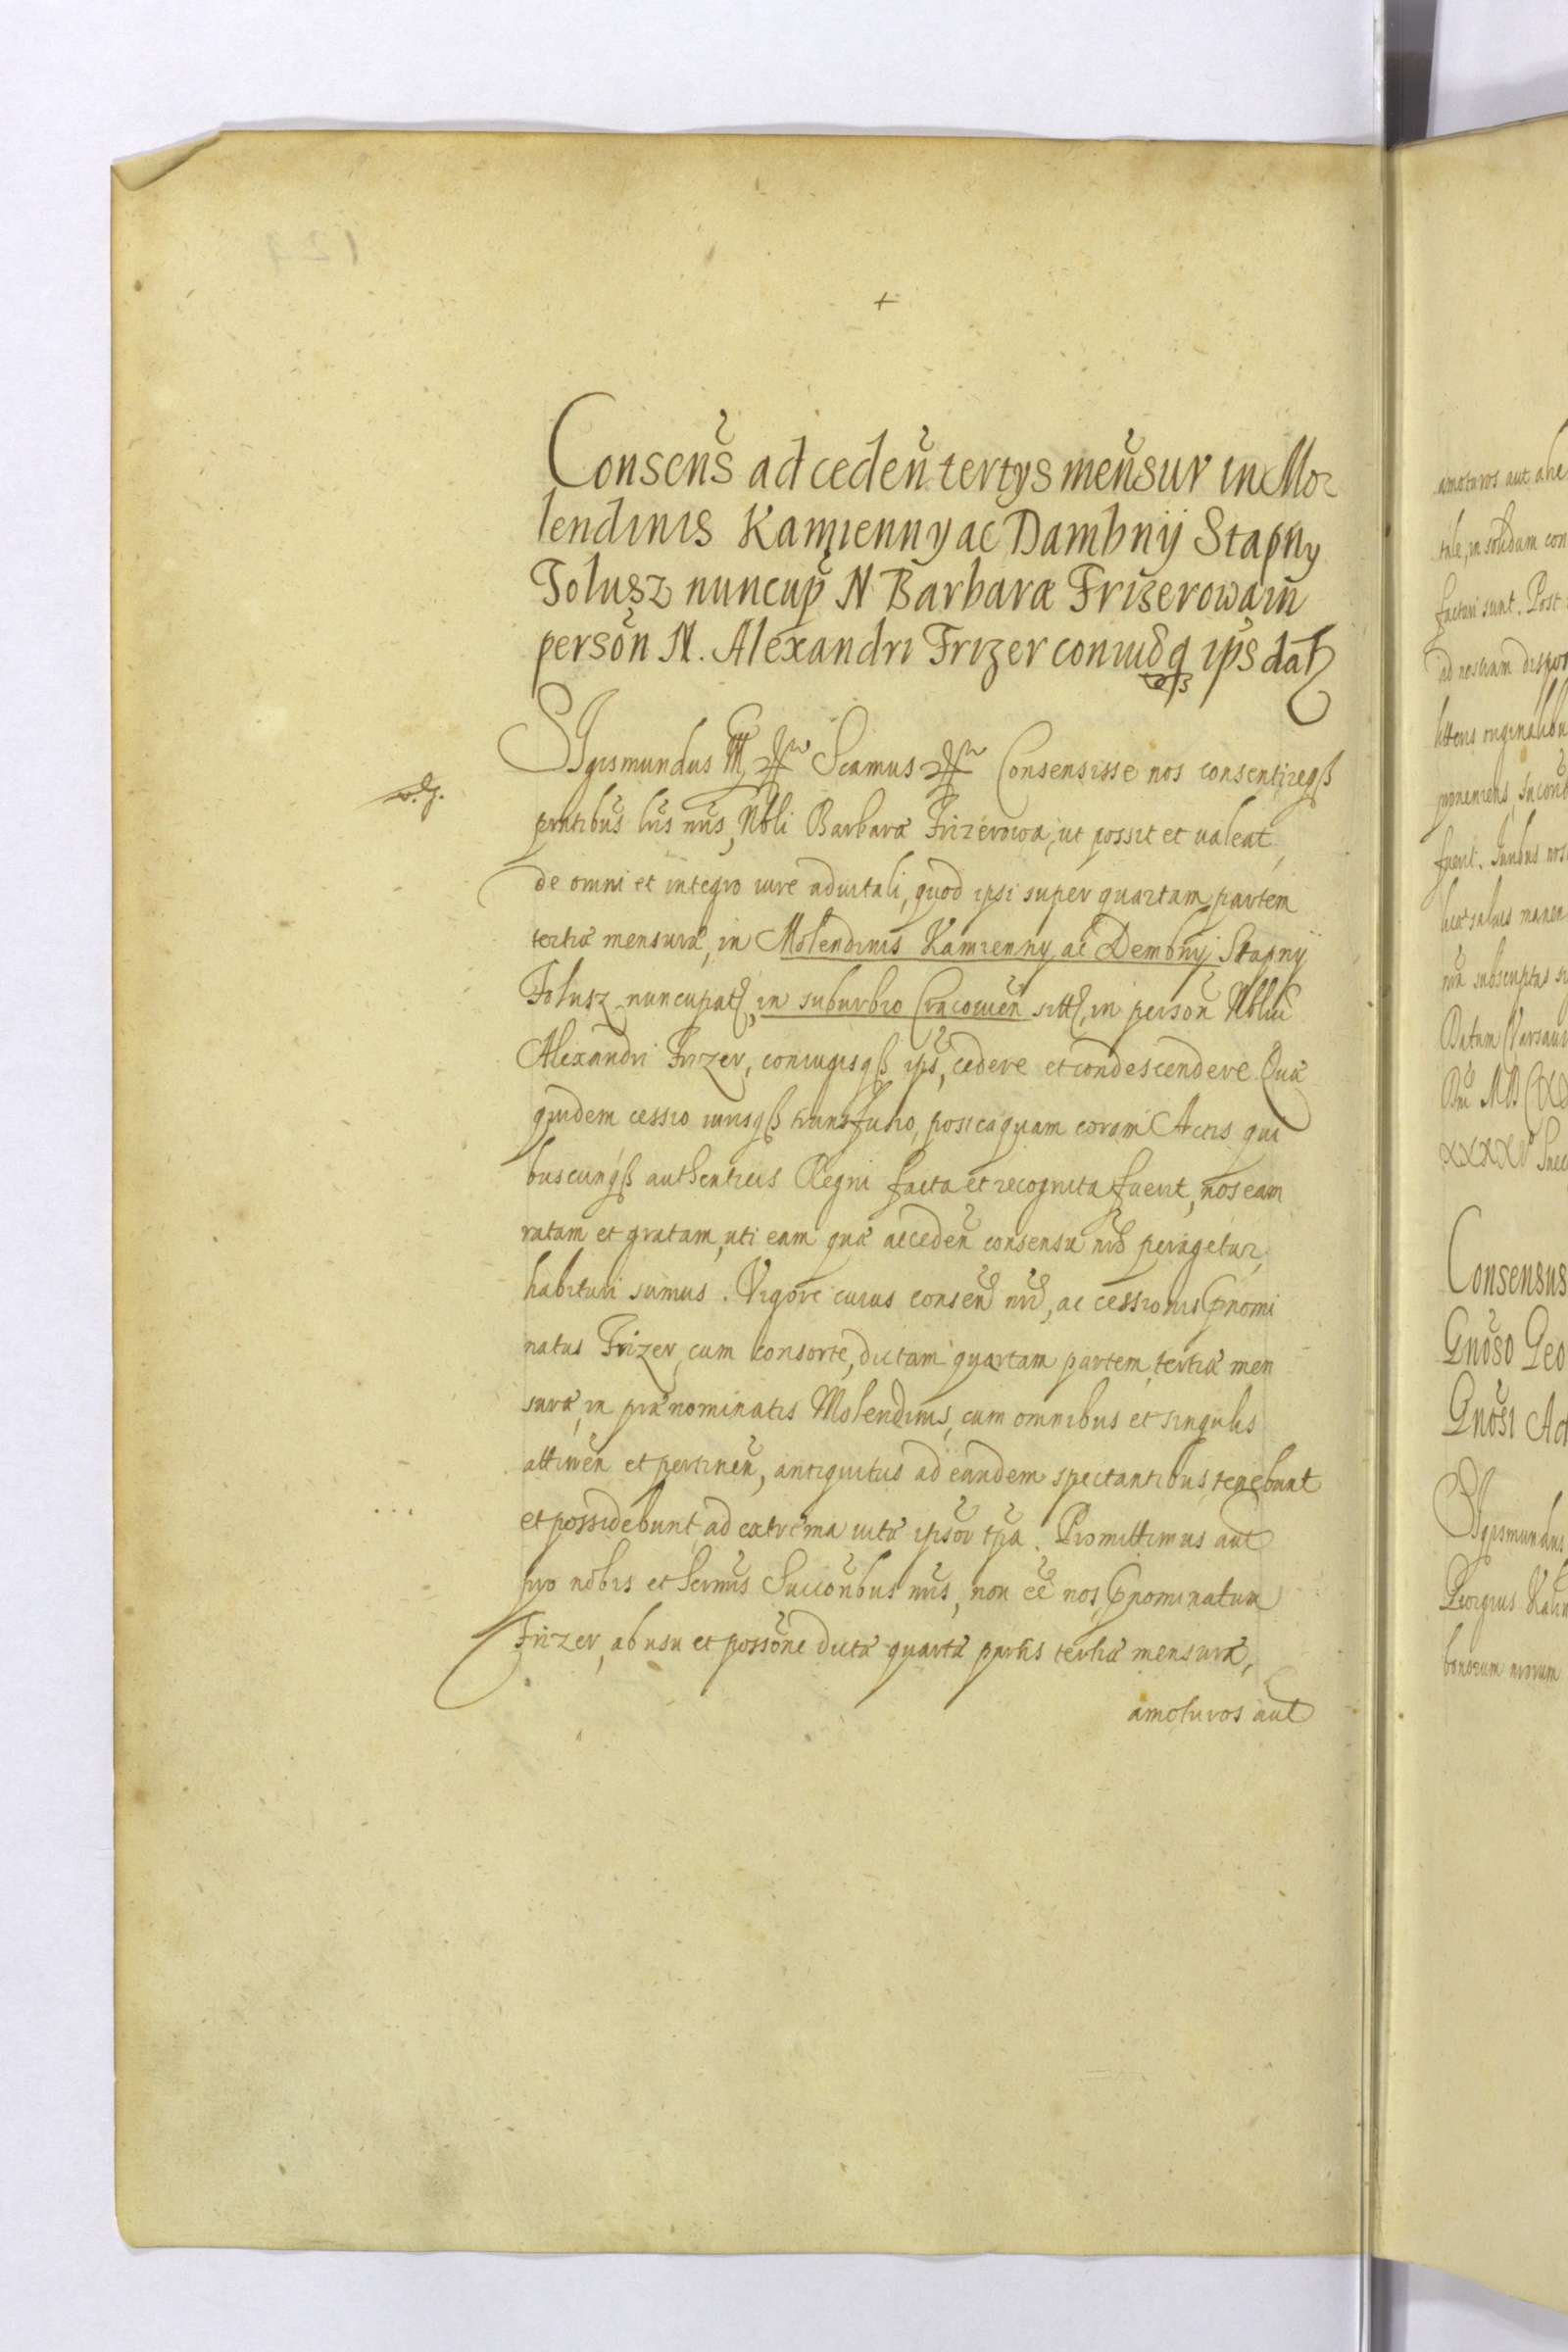 +
Consens ad ceden tertys mensur in Mo
lendinis Kamienny ac Dambnij Stapny
Folusz nuncup N Barbaræ Frizerowa in
person N. Alexandri Frizer coniugq ips dat
Sigismundus III Scamus Consensisse nos consentireqß
pntibus lris nris, Nbli Barbaræ Frizerowa, ut possit et ualeat
de omni et integro iure aduitali, quod ipsi super quartam partem
tertiæ mensuræ, in Molendinis Kamienny ac Dembnij Stapnÿ
Folusz nuncupat, in suburbio Cracouien sitt, in person Nbliu
Alexandri Frizer, coniugisqß ips, cedere et condescendere. Quæ
quidem cessio iurisqß transfusio, posteaquam coram Actis qui
buscunqß authenticis Regni facta et recognita fuerit, nos eam
ratam et gratam, uti eam quæ acceden consensu nro peragetur,
habituri sumus. Vigore cuius consen nri, ac cessionis pnomi
natus Frizer, cum consorte, dictam quartam partem tertiæ men
suræ, in prænominatis Molendinis, cum omnibus et singulis
attinen et pertinen, antiquitus ad eandem spectantibus tenebunt
et possidebunt, ad extrema uitæ ipsor tpa. Promittimus aut
pro nobis et Sermis Succoribus nris, non ee nos pnominatum
Frizer, ab usu et possone dictæ quartæ partis tertiæ mensuræ,
amoturos aut
amoturos aut
in solidum con
facturi sunt. Post
ad nostram dispos
litteris originalibu
fuerit. Juribus nos
manen
nra subscriptas
Datum Varsau
Consensus
Gnoso Geo
Gnosi Ad
Sigismundus
Georgius Kalin
bonorum nrorum